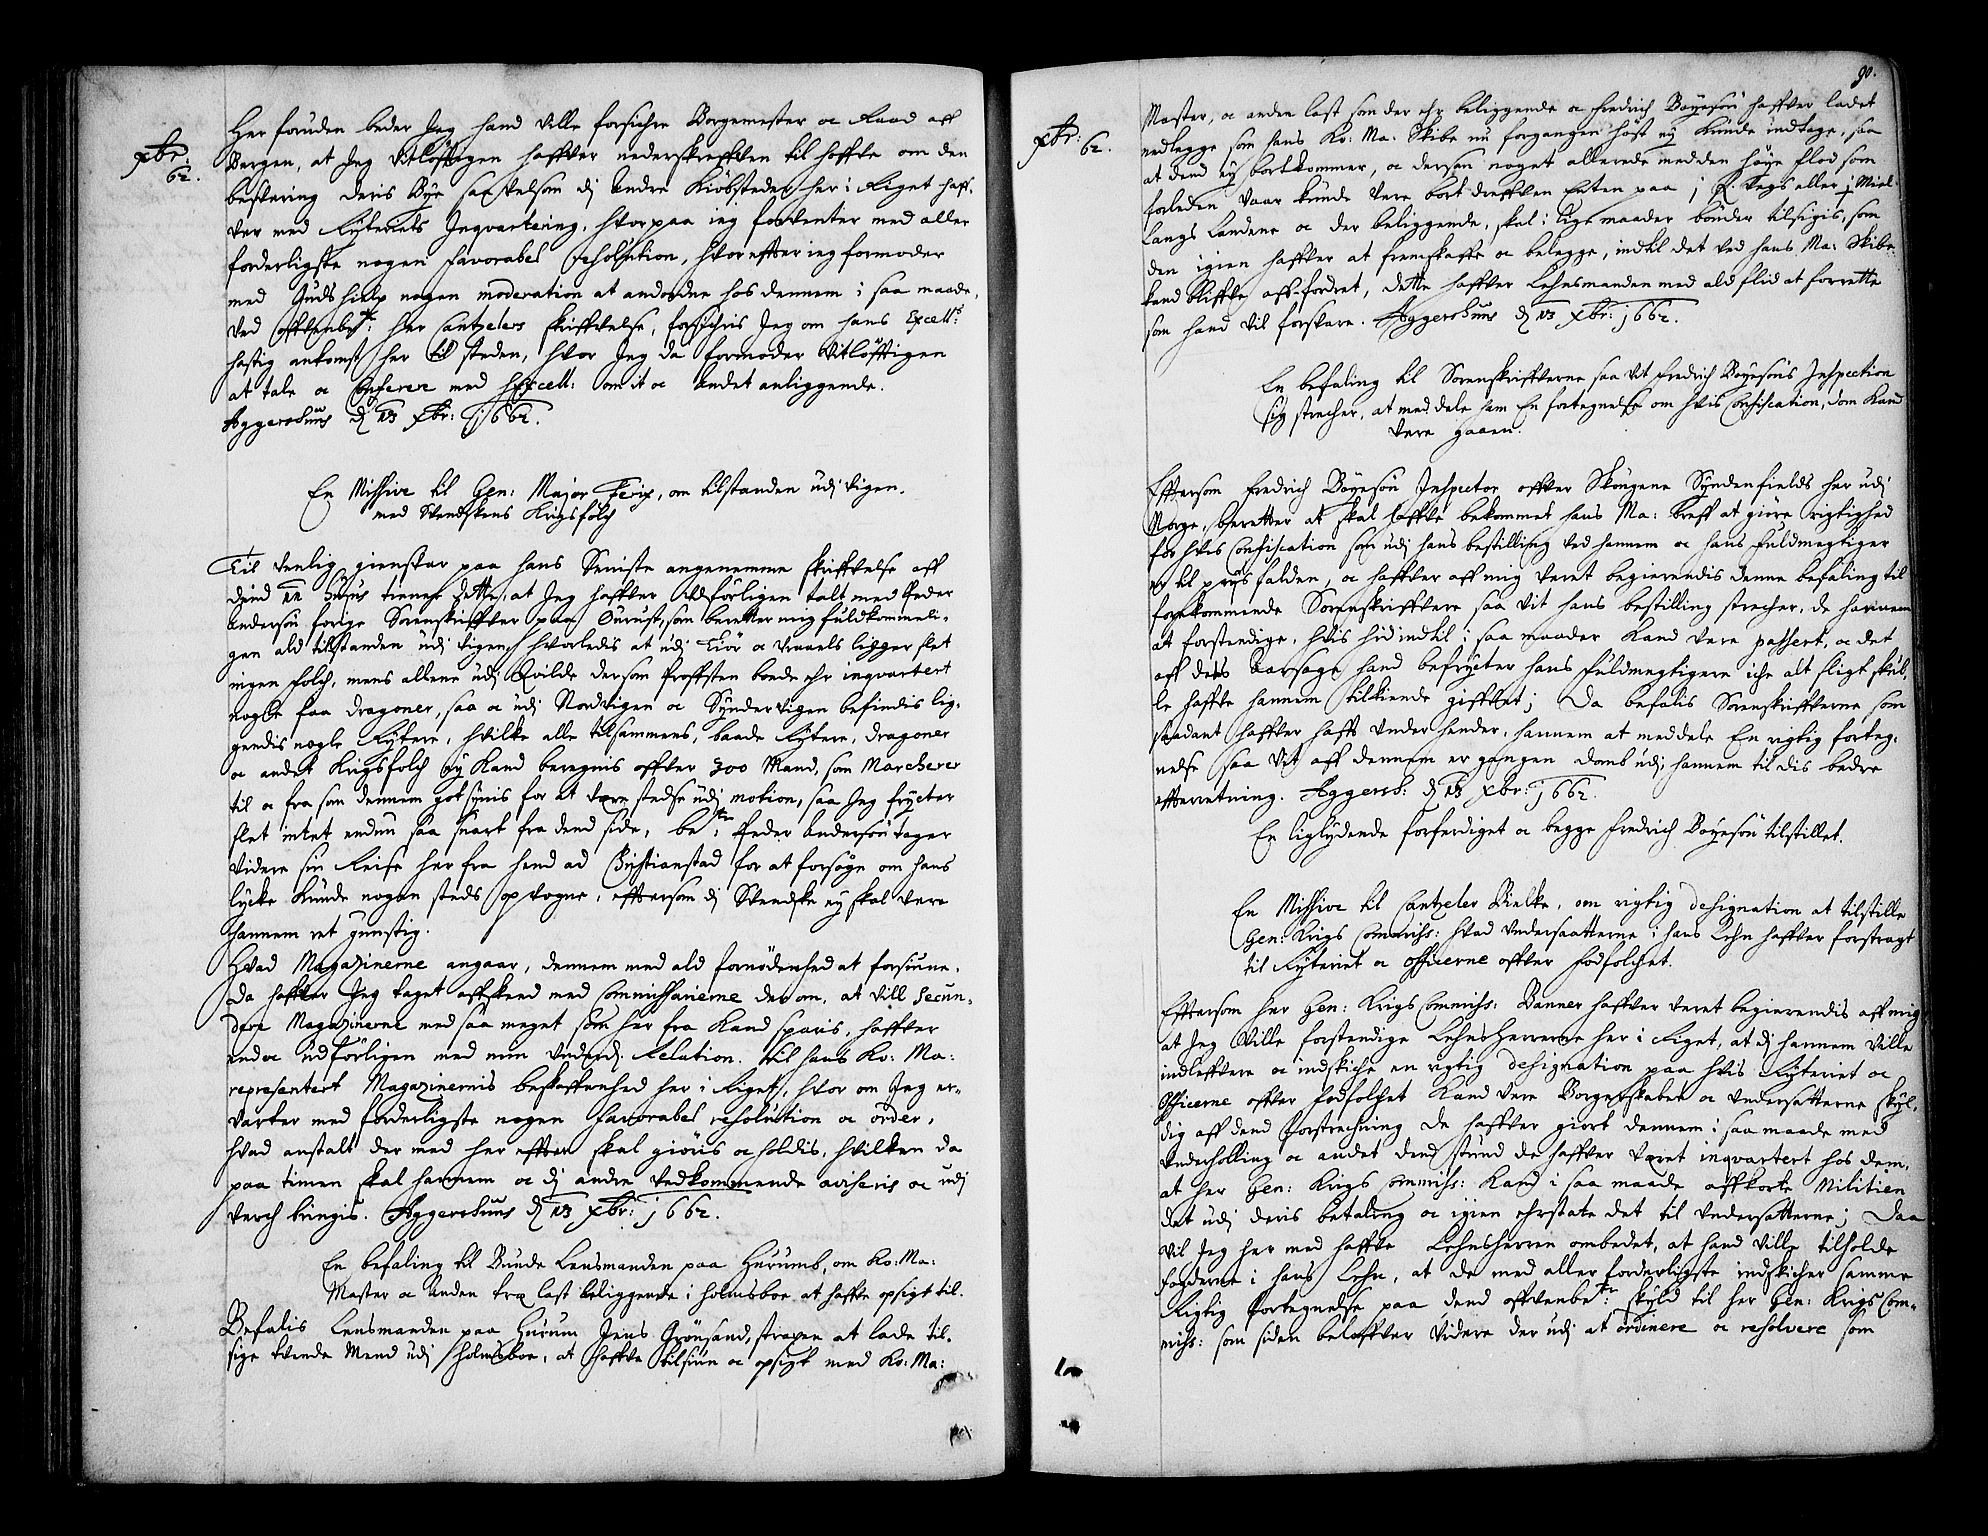 xbr:
62.
Her foruden beder Jeg hand ville forsichre Borgemester oc Raad aff
Bergen, at Jeg vitløfftigen haffver underskreffven til Hoffve om den
besvering deris Bye saavelsom di Andre Kiøbsteder her i Riget haff-
ver med Rytteriets Inqvartering, hvorpaa ieg forventer med aller
forderligste nogen favorabel resolution, hvorefter ieg formoder
med Guds hielp nogen moderation at andordne hos dennem i saa maade,
ved Her Cantzelers skriffvelse, forsichris Jeg om hans Excell:s
hastig ankomst her til steden, hvor Jeg da formoder vitløfftigen
at tale oc Conferere med Excell: om it oc Andet anliggende.
Aggershuus d 13 xbr: 1662.
En Missive til Gen: Major om tilstanden udj Vigen
med Svendskens Krigsfolch
Til venlig giensvar paa hans Seniste angenemme skriffvelse aff
dend hujus tiener dette, at Jeg haffver udførligen talt med Peder
Andersøn forige Sorenskriffver paa Oürust, som beretter mig fuldkommeli-
gen ald tilstanden udj Vigen hvorledis at udj Tiør oc ligger slet
ingen folch, mens allene udj Qvilde dersom Proffsten boede ehr inqvartert
nogle faa dragoner, saa oc udj Nordvigen oc Syndervigen befindis lig-
gendis nogle Rytere, hvilke alle tilsammens, baade Rytere, dragoner
oc andet Krigsfolch ey Kand beregnis offver 300 Mand, som Marcherer
til oc fra som dennem got synis for at være stedse udj motion, saa Jeg frycter
slet intet endnu saa snart fra dend side, be:te Peder Andersøn tager
videre sin Reise her fra hend ad Christianstad for at forsøge om hans
lycke Kunde nogen steds op vogne, effter som di Svendske ey skal vere
hannem ret gunstig.
Hvad Magazinerne angaar, dennem med ald fornødenhed at forsiune,
da haffver Jeg taget affskeed med Commissarierne der om, at vill secun-
dere Magazinerne med saa meget som her fra Kand sparis, haffver
endoc udførligen med min underd: Relation til hans Ko: Ma:
representert Magazinernis beskaffenhed her i Riget, hvor om Jeg er-
varter med forderligste nogen favorabel resolution oc order,
hvad anstalt der med her effter skal giøris oc holdis, hvilken da
paa timen skal hannem oc di andre vedkommende aviseris oc udj
verch bringis. Aggershuus d 13 xbr: 1662.
En befaling til Bunde Lensmanden paa Hurumb, om Ko: Ma:
Master oc Anden træ last beliggende i Holmsboe at haffve opsigt til.
Befalis Lensmanden paa Hurum Jens Grønsand, strapen at lade til-
sige tvende Mend udj Holmsboe, at haffve tilsiun oc opsigt med Ko: Ma:
90.
xbr: 62.
Master, oc anden last som der ehr beliggende oc Fredrich Boyesøn haffver ladet
nedlegge som hans Ko: Ma: Skibe nu forgangen høst ey Kunde indtage, saa
at dend ey bortkommer, oc dersom noget allerede med den høye flod som
forleden vaar kunde vere bortdreffven enten paa j fl. vegs eller j Miel
langs Landene oc der beliggende, skal i lige maader bønder tilsigis, som
den igien haffver at fremskaffe oc belegge, indtil det ved hans Ma: Skibe
kand bliffve aff-fordret, dette haffver Lehnsmanden med ald flid at forrette
som hand vil forsvare. Aggershuus d 13 xbr: 1662.
En befaling til Sorenskriffverne saa vit Fredrich Boyesøns Inspection
sig strecher, at meddele ham En fortegnelse om hvis Confiscation, som Kand
vere gaaen.
Effterssom Fredrich Boyesøn Inspector offver Skougene Syndenfields her udj
Norge, beretter at skal haffve bekommet hans Ma: breff at giøre rigtighed
for hvis Confiscation som udj hans bestilling ved hannem oc hans fuldmegtiger
er til priis falden, oc haffver aff mig veret begierendis denne befaling til
forekommende Sorenskriffvere saa vit hans bestilling strecher, de hannem
at forstendige, hvis hid indtil i saa maader Kand vere passert, oc det
aff deds Aarsage hand befrycter hans fuldmegtigere iche alt sligt skul-
le haffve hannem tilkiende gifvet; Da befalis Sorenskriffverne som
saadant haffver hafft under hender, hannem at meddele En rigtig forteg-
nelse saa vit aff dennem er gangen domb udj, hannem til dis bedre
effterretning. Aggersh: d 13 xbr: 1662.
En liglydende forferdiget oc begge Fredrich Boyesøn tilstillet.
En Missive til Cantzeler Bielke, om rigtig designation at tilstille
Gen: Krigs Commiss: hvad undersaatterne i hans Lehn haffver forstragt
til Ryteriet oc Officerne offver fodfolchet.
Efftersom her Gen: Krigs Commiss: Banner haffver veret begierendis aff mig
at Jeg ville forstendige Lehnsherrerne her i Riget, at di hannem ville
indleffvere oc indskiche en rigtig designation paa hvis Ryteriet oc
Officerne offver fodfolchet Kand vere Borgerskabet oc Undersatterne skyl-
dig aff dend forstrechning de haffver giort dennem i saa maade med
Underholling oc andet dend stund de haffver veret inqvartert hos dem,
at her Gen: Krigs Commiss: Kand i saa maade affkorte Militien
det udj deris betaling oc igien ehrstate det til Undersatterne; Daa
vil Jeg her med haffve Lehnsherren ombedet, at hand ville tilholde
fogderne i hans Lehn, at de med aller forderligste indskicher samme
Rigtig fortegnelse paa dend offvenbe:te skyld til her Gen: Krigs Com-
miss: som siden belaffver videre der udj at ordinere oc resolvere som